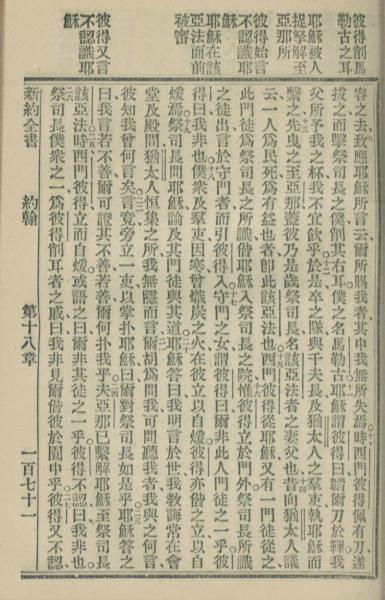 彼得削馬
勒古之耳
耶穌被人
捉拏解至
亞那所
彼得始言
不認識耶
穌
耶穌在該
亞法面前
被審
彼得又言
不認識耶
穌
容之去、政應耶穌所言、云、爾所賜我者、其中我無所失焉、時西門彼得佩有刀、遂
拔之而擊祭司長之僕、削其右耳、僕之名馬勒古、耶穌謂彼得曰、韜爾刀於鞘、我
父所予我之杯、我不宜飲乎、十二於是卒之隊、與千夫長、及猶太人之羣吏、執耶穌而
繫之、十三先曳之至亞那、蓋彼乃是歲祭司長名該亞法者之妻父也、十四昔向猶太人議
云、一人爲民死爲有益也者、卽此該亞法也、十五西門彼得從耶穌、又有一門徒從之、
此門徒爲祭司長之所識、偕耶穌入祭司長之院、十六惟彼得立於門外、祭司長所識
之徒出、言於守門者、而引彼得入、十七守門之女、謂彼得曰、爾非此人門徒之一乎、彼
得曰、我非也、十八僕衆及羣吏、因寒曾熾炭之火、在彼立以自煖、彼得亦偕之立以自
煖焉、十九祭司長問耶穌、論及其門徒與其道、二十耶穌答曰、我明言於世、我敎誨常在會
堂及殿間、猶太人恒集之所、我無隱而言、爾胡爲問我、可問聽我者、我與之何言、
彼知我曾何言矣、言竟、旁立一吏、以掌扑耶穌、曰、爾對祭司長如是乎、耶穌答之
曰、我言若不善、爾可證其不善、若善、爾何扑我乎、夫亞那已繫解耶穌至祭司長
該亞法、二五時西門彼得立而自煖、或語之曰、爾非其徒之一乎、彼得不認曰、我非也、
二六祭司長僕衆之一、爲彼得削耳者之戚、曰、我非見爾偕彼於園中乎、二七彼得又不認、
新約全書 約翰 第十八章 一百七十一